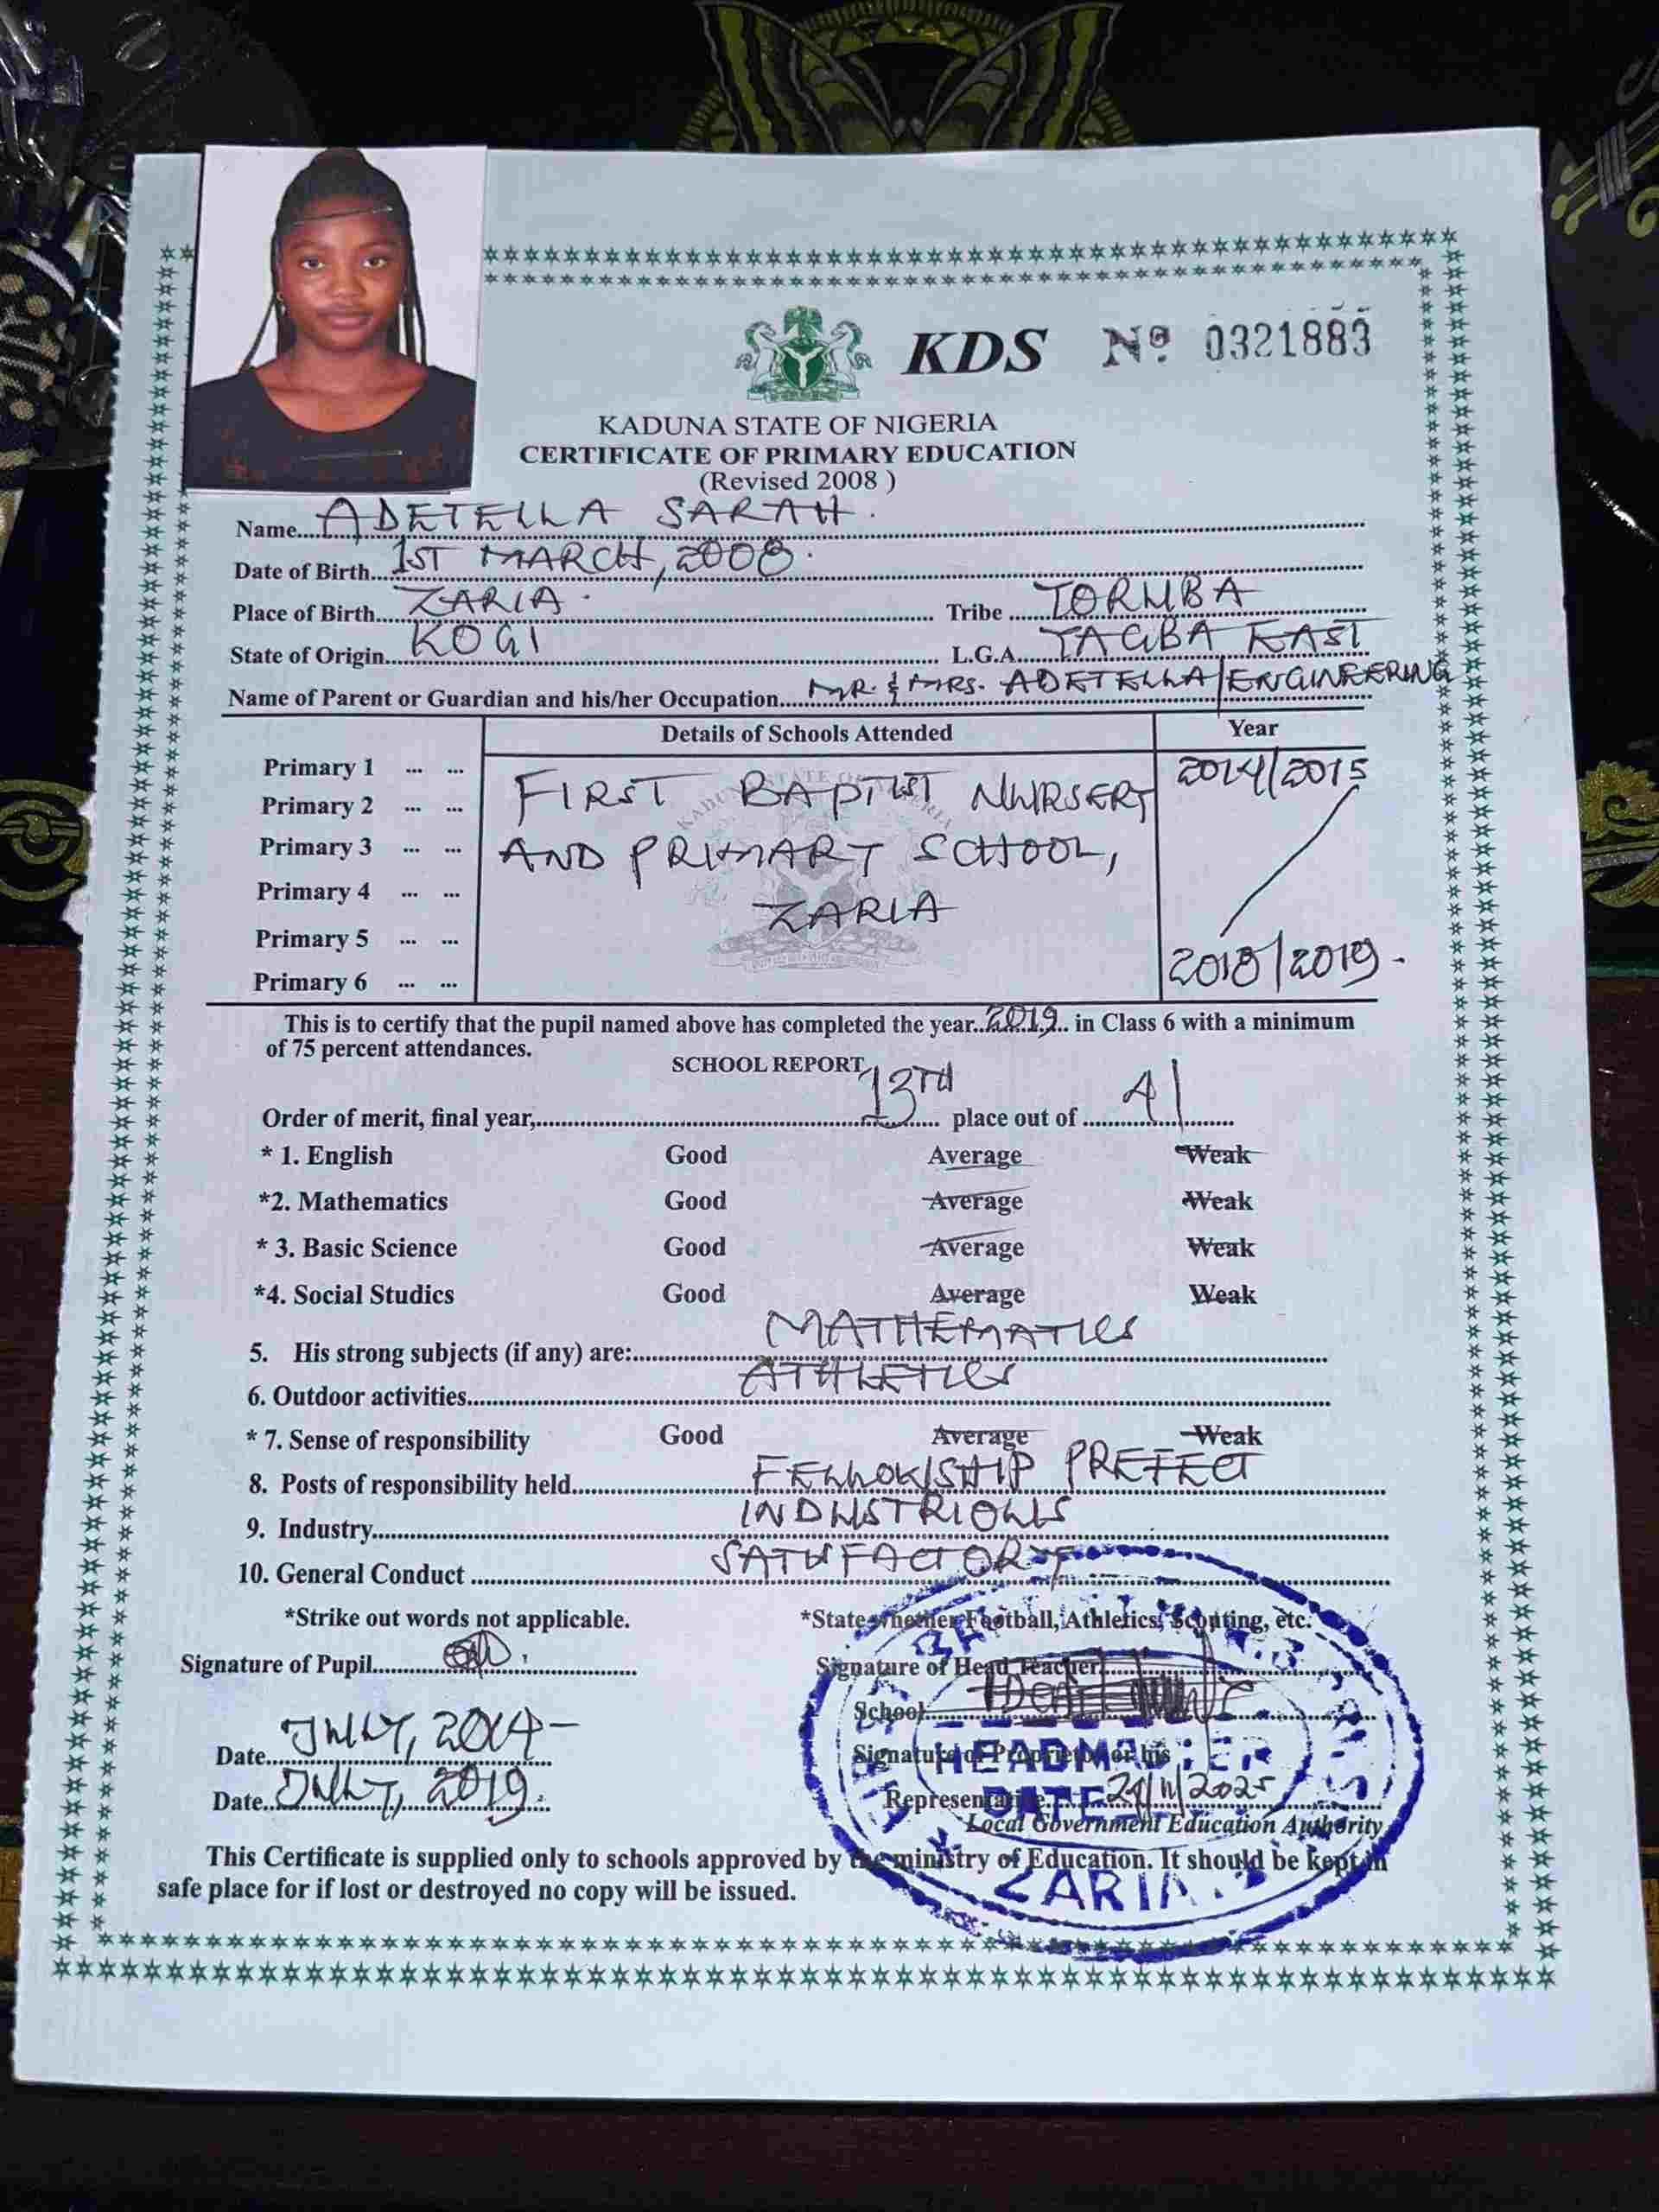 KDS Nº 0321883
KADUNA STATE OF NIGERIA
CERTIFICATE OF PRIMARY EDUCATION
(Revised 2008 )
Name....ADETELLA SARAH.
Date of Birth...1ST MARCH, 2008.
Place of Birth...ZARIA. Tribe ....YORUBA
State of Origin...KOGI L.G.A....YAGBA EAST
Name of Parent or Guardian and his/her Occupation....MR. & MRS. ADETELLA/ENGINEERING
Details of Schools Attended Year
Primary 1 ... ... 2014/2015
Primary 2 ... ... FIRST BAPTIST NURSERY
Primary 3 ... ... AND PRIMARY SCHOOL,
Primary 4 ... ... ZARIA
Primary 5 ... ...
Primary 6 ... ... 2018/2019.
This is to certify that the pupil named above has completed the year..2019.. in Class 6 with a minimum
of 75 percent attendances.
SCHOOL REPORT
Order of merit, final year,....13TH place out of ....41
* 1. English Good Average Weak
*2. Mathematics Good Average Weak
* 3. Basic Science Good Average Weak
*4. Social Studies Good Average Weak
5. His strong subjects (if any) are:....MATHEMATICS
6. Outdoor activities....ATHLETICS
* 7. Sense of responsibility Good Average Weak
8. Posts of responsibility held....FELLOWSHIP PREFECT
9. Industry....INDUSTRIOUS
10. General Conduct ....SATISFACTORY
*Strike out words not applicable. *State whether Football, Athletics, Scouting, etc.
Signature of Pupil.... Signature of Head Teacher....
School....
Date....JULY, 2014 Signature of Proprietor or his
HEADMASTER
Date....JULY, 2019. Representative....
DATE 29/11/2025
Local Government Education Authority
This Certificate is supplied only to schools approved by the ministry of Education. It should be kept in
safe place for if lost or destroyed no copy will be issued.
ZARIA.